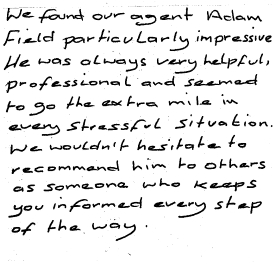 We found our agent Adam
Field particularly impressive
He was always very helpful,
professional and seemed
to go the extra mile in
every stressful situation.
We wouldn't hesitate to
recommend him to others
as someone who keeps
you informed every step
of the way.